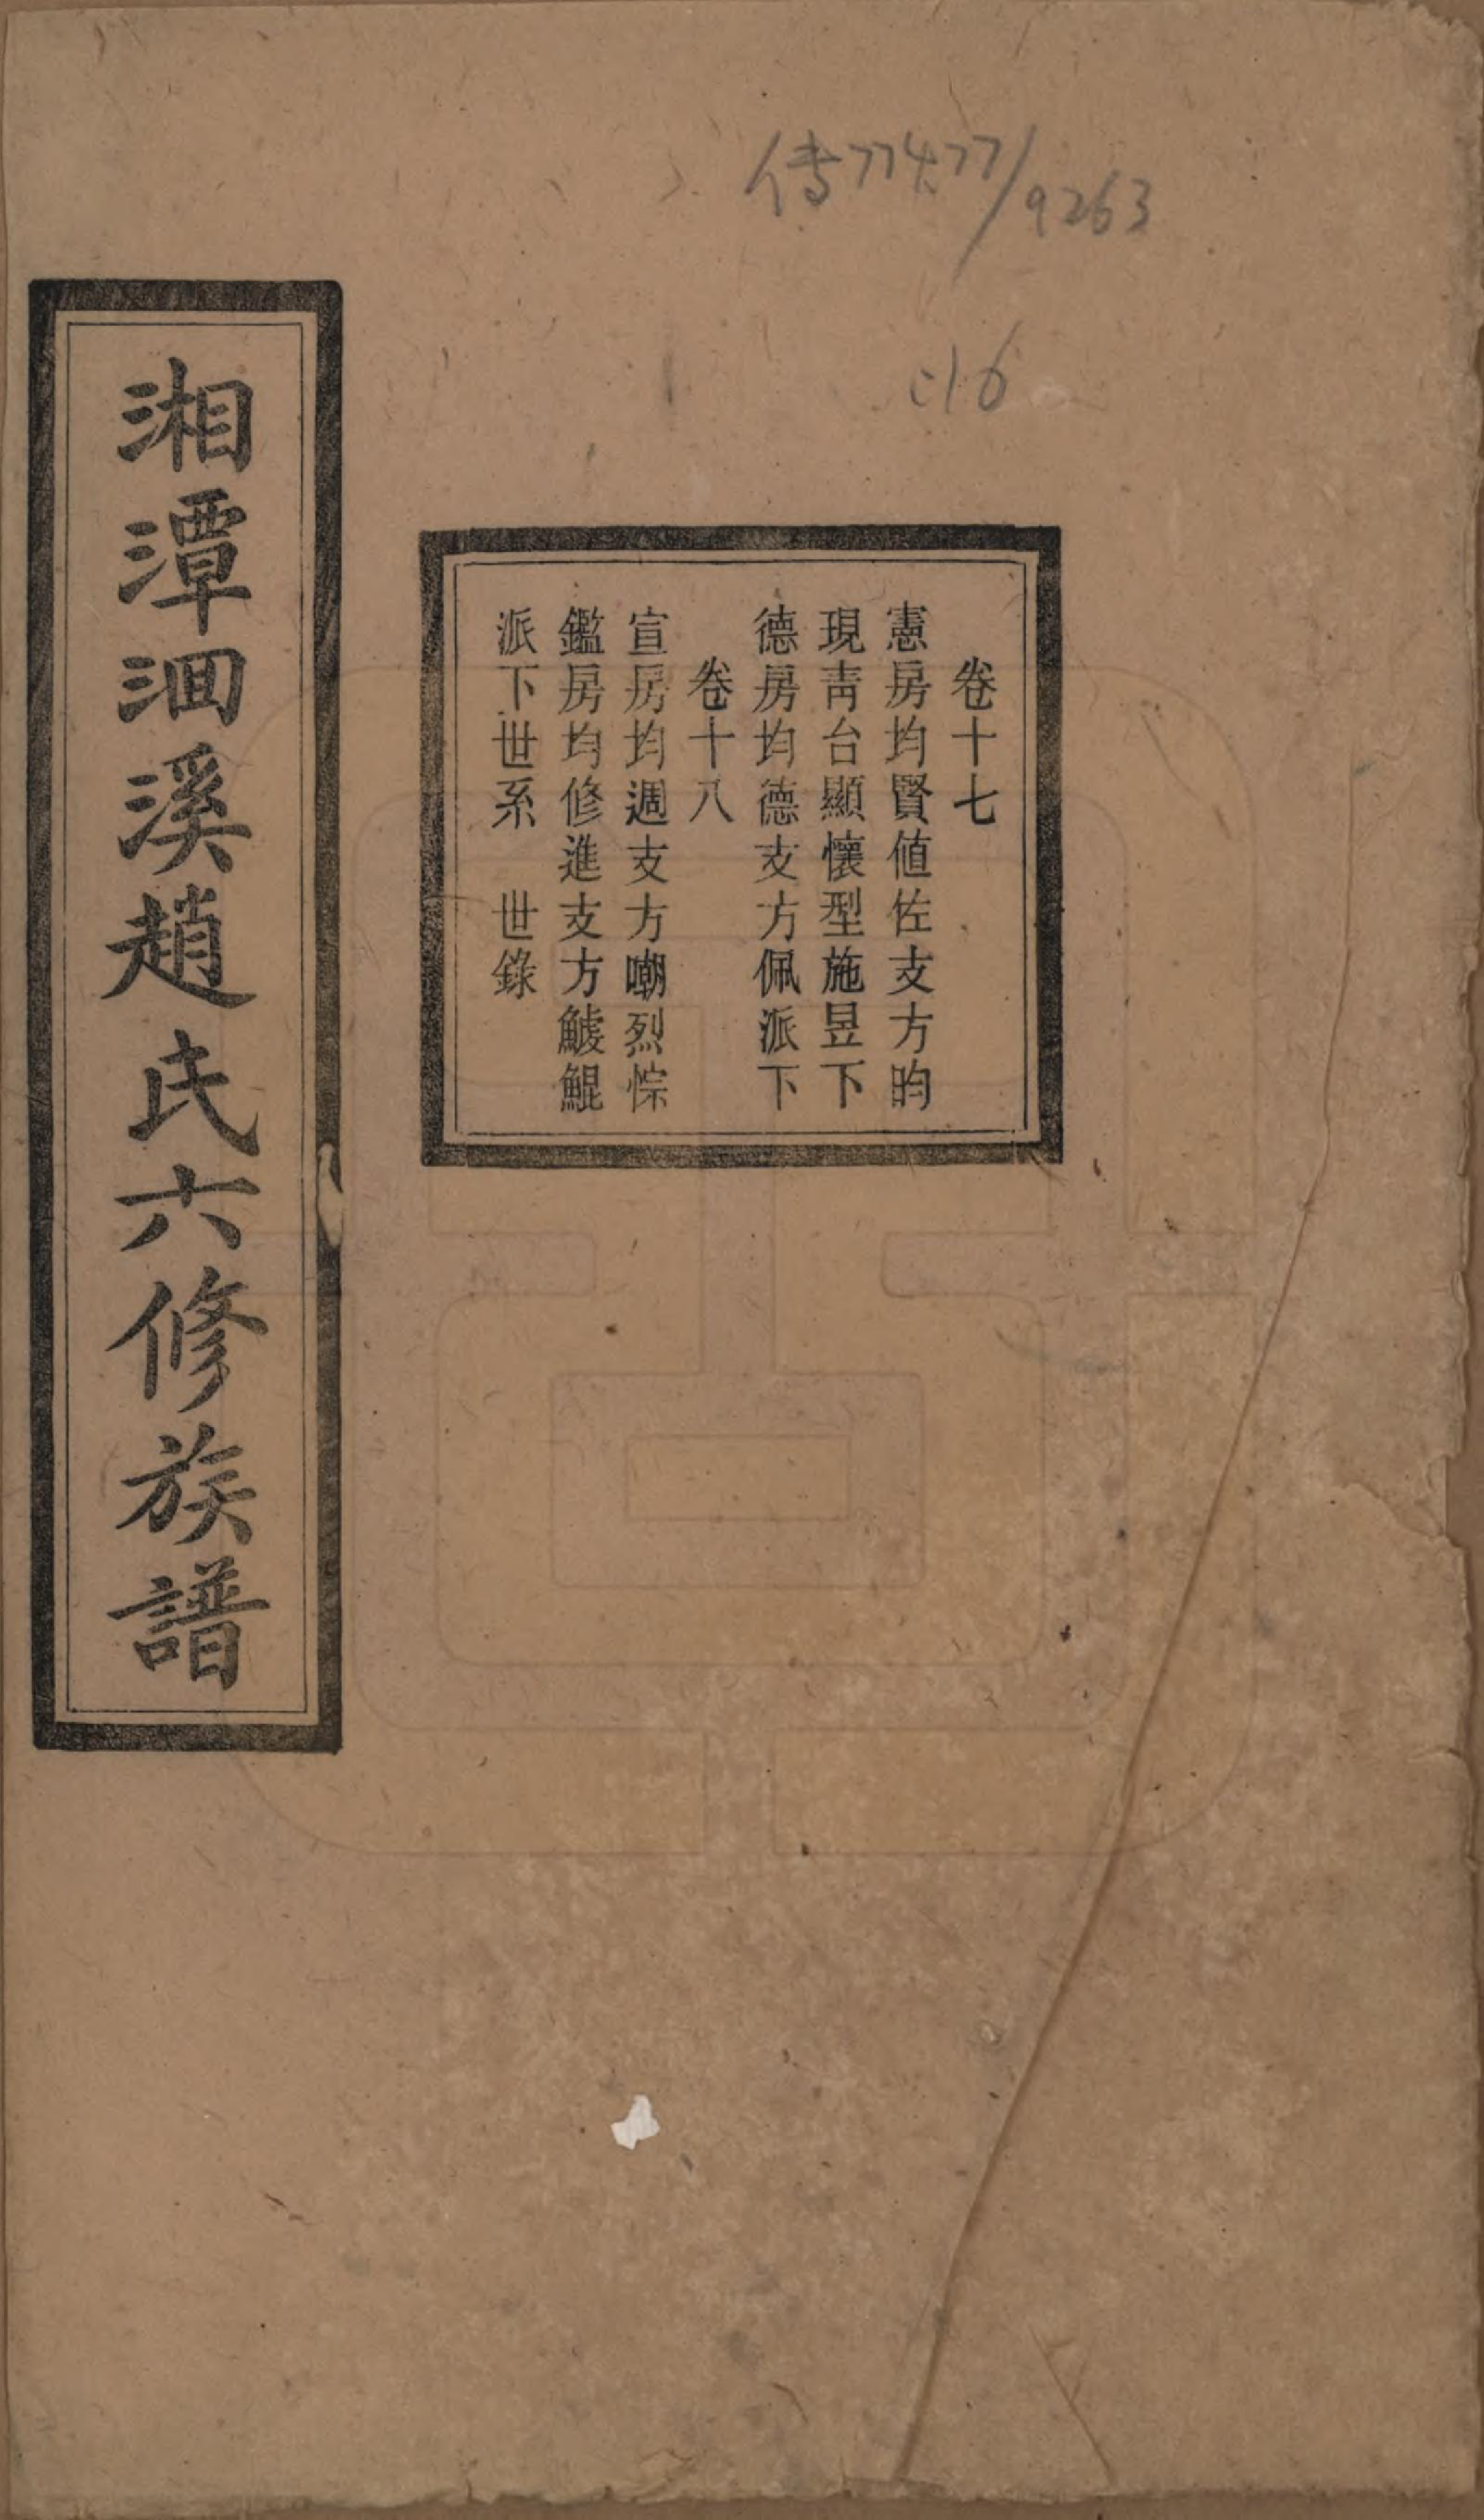 傳77477/9263
:16
卷十七
憲房均賢値佐支方昀
現靑台顯懷型施昱下
德房均德支方佩派下
卷十八
宣房均週支方嘲烈悰
鑑房均修進支方鯪鯤
派下世系　世錄
湘潭泗溪趙氏六修族譜